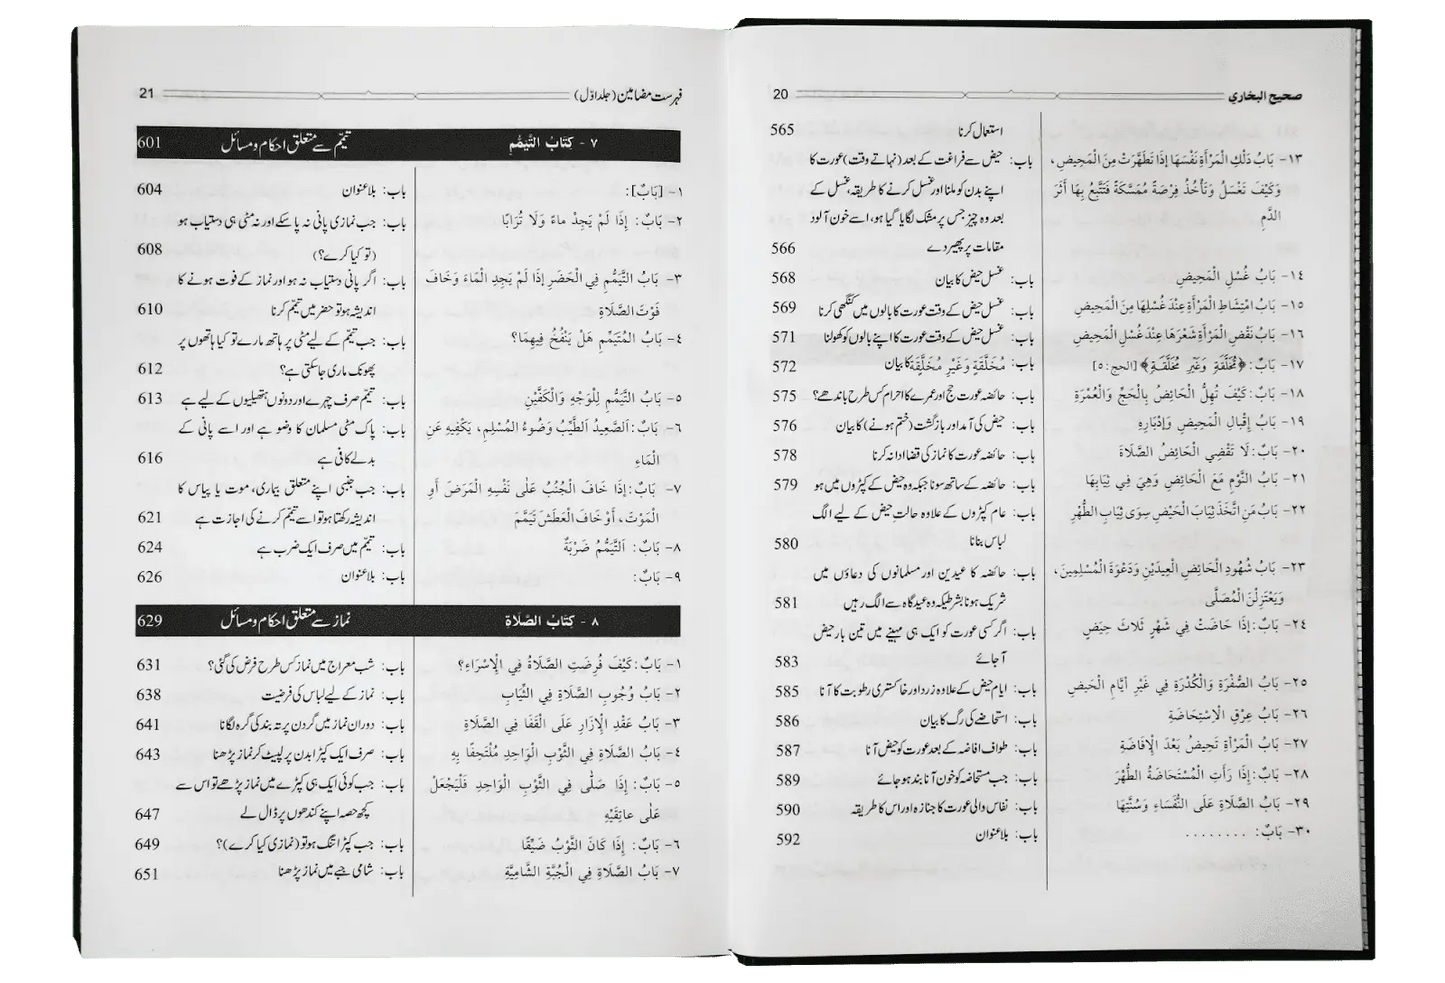 صحيح البخاري 20
استعمال کرنا 565
١٣- بَابُ دَلْكِ الْمَرْأَةِ نَفْسَهَا إِذَا تَطَهَّرَتْ مِنَ الْمَحِيضِ، باب: حیض سے فراغت کے بعد (نہاتے وقت) عورت کا
وَكَيْفَ تَغْسِلُ وَتَأْخُذُ فِرْصَةً مُمَسَّكَةً فَتَتَّبِعُ بِهَا أَثَرَ اپنے بدن کو ملنا اور غسل کرنے کا طریقہ، غسل کے
الدَّمِ بعد وہ چیز جس پر مشک لگایا گیا ہو، اسے خون آلود
مقامات پر پھیر دے 566
١٤- بَابُ غُسْلِ الْمَحِيضِ باب: غسل حیض کا بیان 568
١٥- بَابُ امْتِشَاطِ الْمَرْأَةِ عِنْدَ غُسْلِهَا مِنَ الْمَحِيضِ باب: غسل حیض کے وقت عورت کا بالوں میں کنگھی کرنا 569
١٦- بَابُ نَقْضِ الْمَرْأَةِ شَعْرَهَا عِنْدَ غُسْلِ الْمَحِيضِ باب: غسل حیض کے وقت عورت کا اپنے بالوں کو کھولنا 571
١٧- بَابٌ: ﴿مُخَلَّقَةٍ وَغَيْرِ مُخَلَّقَةٍ﴾ [الحج: ٥] باب: مُخَلَّقَةٍ وَغَيْرِ مُخَلَّقَةٍ کا بیان 572
١٨- بَابٌ: كَيْفَ تُهِلُّ الْحَائِضُ بِالْحَجِّ وَالْعُمْرَةِ باب: حائضہ عورت حج اور عمرے کا احرام کس طرح باندھے؟ 575
١٩- بَابُ إِقْبَالِ الْمَحِيضِ وَإِدْبَارِهِ باب: حیض کی آمد اور بازگشت (ختم ہونے) کا بیان 576
٢٠- بَابٌ: لَا تَقْضِي الْحَائِضُ الصَّلَاةَ باب: حائضہ عورت کا نماز کی قضا ادا نہ کرنا 578
٢١- بَابُ النَّوْمِ مَعَ الْحَائِضِ وَهِيَ فِي ثِيَابِهَا باب: حائضہ کے ساتھ سونا جبکہ وہ حیض کے کپڑوں میں ہو 579
٢٢- بَابُ مَنِ اتَّخَذَ ثِيَابَ الْحَيْضِ سِوَى ثِيَابِ الطُّهْرِ باب: عام کپڑوں کے علاوہ حالت حیض کے لیے الگ
لباس بنانا 580
٢٣- بَابُ شُهُودِ الْحَائِضِ الْعِيدَيْنِ وَدَعْوَةَ الْمُسْلِمِينَ، باب: حائضہ کا عیدین اور مسلمانوں کی دعاؤں میں
وَيَعْتَزِلْنَ الْمُصَلَّى شریک ہونا بشرطیکہ وہ عیدگاہ سے الگ رہیں 581
٢٤- بَابٌ: إِذَا حَاضَتْ فِي شَهْرٍ ثَلَاثَ حِيَضٍ باب: اگر کسی عورت کو ایک ہی مہینے میں تین بار حیض
آجائے 583
٢٥- بَابُ الصُّفْرَةِ وَالْكُدْرَةِ فِي غَيْرِ أَيَّامِ الْحَيْضِ باب: ایام حیض کے علاوہ زرد اور خاکستری رطوبت کا آنا 585
٢٦- بَابُ عِرْقِ الْاِسْتِحَاضَةِ باب: استحاضے کی رگ کا بیان 586
٢٧- بَابُ الْمَرْأَةِ تَحِيضُ بَعْدَ الْإِفَاضَةِ باب: طواف افاضہ کے بعد عورت کو حیض آنا 587
٢٨- بَابٌ: إِذَا رَأَتِ الْمُسْتَحَاضَةُ الطُّهْرَ باب: جب مستحاضہ کو خون آنا بند ہو جائے 589
٢٩- بَابُ الصَّلَاةِ عَلَى النُّفَسَاءِ وَسُنَّتِهَا باب: نفاس والی عورت کا جنازہ اور اس کا طریقہ 590
٣٠- بَابٌ: ........ باب: بلا عنوان 592
فہرست مضامین (جلد اوّل) 21
٧ - كِتَابُ التَّيَمُّمِ تیمّم سے متعلق احکام و مسائل 601
١- [بَابٌ]: باب: بلا عنوان 604
٢- بَابٌ: إِذَا لَمْ يَجِدْ مَاءً وَلَا تُرَابًا باب: جب نمازی پانی نہ پا سکے اور نہ مٹی ہی دستیاب ہو
(تو کیا کرے؟) 608
٣- بَابُ التَّيَمُّمِ فِي الْحَضَرِ إِذَا لَمْ يَجِدِ الْمَاءَ وَخَافَ باب: اگر پانی دستیاب نہ ہو اور نماز کے فوت ہونے کا
فَوْتَ الصَّلَاةِ اندیشہ ہو تو حضر میں تیمّم کرنا 610
٤- بَابُ الْمُتَيَمِّمِ هَلْ يَنْفُخُ فِيهِمَا؟ باب: جب تیمّم کے لیے مٹی پر ہاتھ مارے تو کیا ہاتھوں پر
پھونک ماری جا سکتی ہے؟ 612
٥- بَابُ التَّيَمُّمِ لِلْوَجْهِ وَالْكَفَّيْنِ باب: تیمّم صرف چہرے اور دونوں ہتھیلیوں کے لیے ہے 613
٦- بَابٌ: اَلصَّعِيدُ الطَّيِّبُ وَضُوءُ الْمُسْلِمِ، يَكْفِيهِ عَنِ باب: پاک مٹی مسلمان کا وضو ہے اور اسے پانی کے
الْمَاءِ بدلے کافی ہے 616
٧- بَابٌ: إِذَا خَافَ الْجُنُبُ عَلَى نَفْسِهِ الْمَرَضَ أَوِ باب: جب جنبی اپنے متعلق بیماری، موت یا پیاس کا
الْمَوْتَ، أَوْ خَافَ الْعَطَشَ تَيَمَّمَ اندیشہ رکھتا ہو تو اسے تیمّم کرنے کی اجازت ہے 621
٨- بَابٌ: اَلتَّيَمُّمُ ضَرْبَةٌ باب: تیمّم میں صرف ایک ضرب ہے 624
٩- بَابٌ: باب: بلا عنوان 626
٨ - كِتَابُ الصَّلَاةِ نماز سے متعلق احکام و مسائل 629
١- بَابٌ: كَيْفَ فُرِضَتِ الصَّلَاةُ فِي الْإِسْرَاءِ؟ باب: شب معراج میں نماز کس طرح فرض کی گئی؟ 631
٢- بَابُ وُجُوبِ الصَّلَاةِ فِي الثِّيَابِ باب: نماز کے لیے لباس کی فرضیت 638
٣- بَابُ عَقْدِ الْإِزَارِ عَلَى الْقَفَا فِي الصَّلَاةِ باب: دوران نماز میں گردن پر تہ بند کی گرہ لگانا 641
٤- بَابُ الصَّلَاةِ فِي الثَّوْبِ الْوَاحِدِ مُلْتَحِفًا بِهِ باب: صرف ایک کپڑا بدن پر لپیٹ کر نماز پڑھنا 643
٥- بَابٌ: إِذَا صَلَّى فِي الثَّوْبِ الْوَاحِدِ فَلْيَجْعَلْ باب: جب کوئی ایک ہی کپڑے میں نماز پڑھے تو اس سے
عَلَى عَاتِقَيْهِ کچھ حصہ اپنے کندھوں پر ڈال لے 647
٦- بَابٌ: إِذَا كَانَ الثَّوْبُ ضَيِّقًا باب: جب کپڑا تنگ ہو تو (نمازی کیا کرے)؟ 649
٧- بَابُ الصَّلَاةِ فِي الْجُبَّةِ الشَّامِيَّةِ باب: شامی جبے میں نماز پڑھنا 651